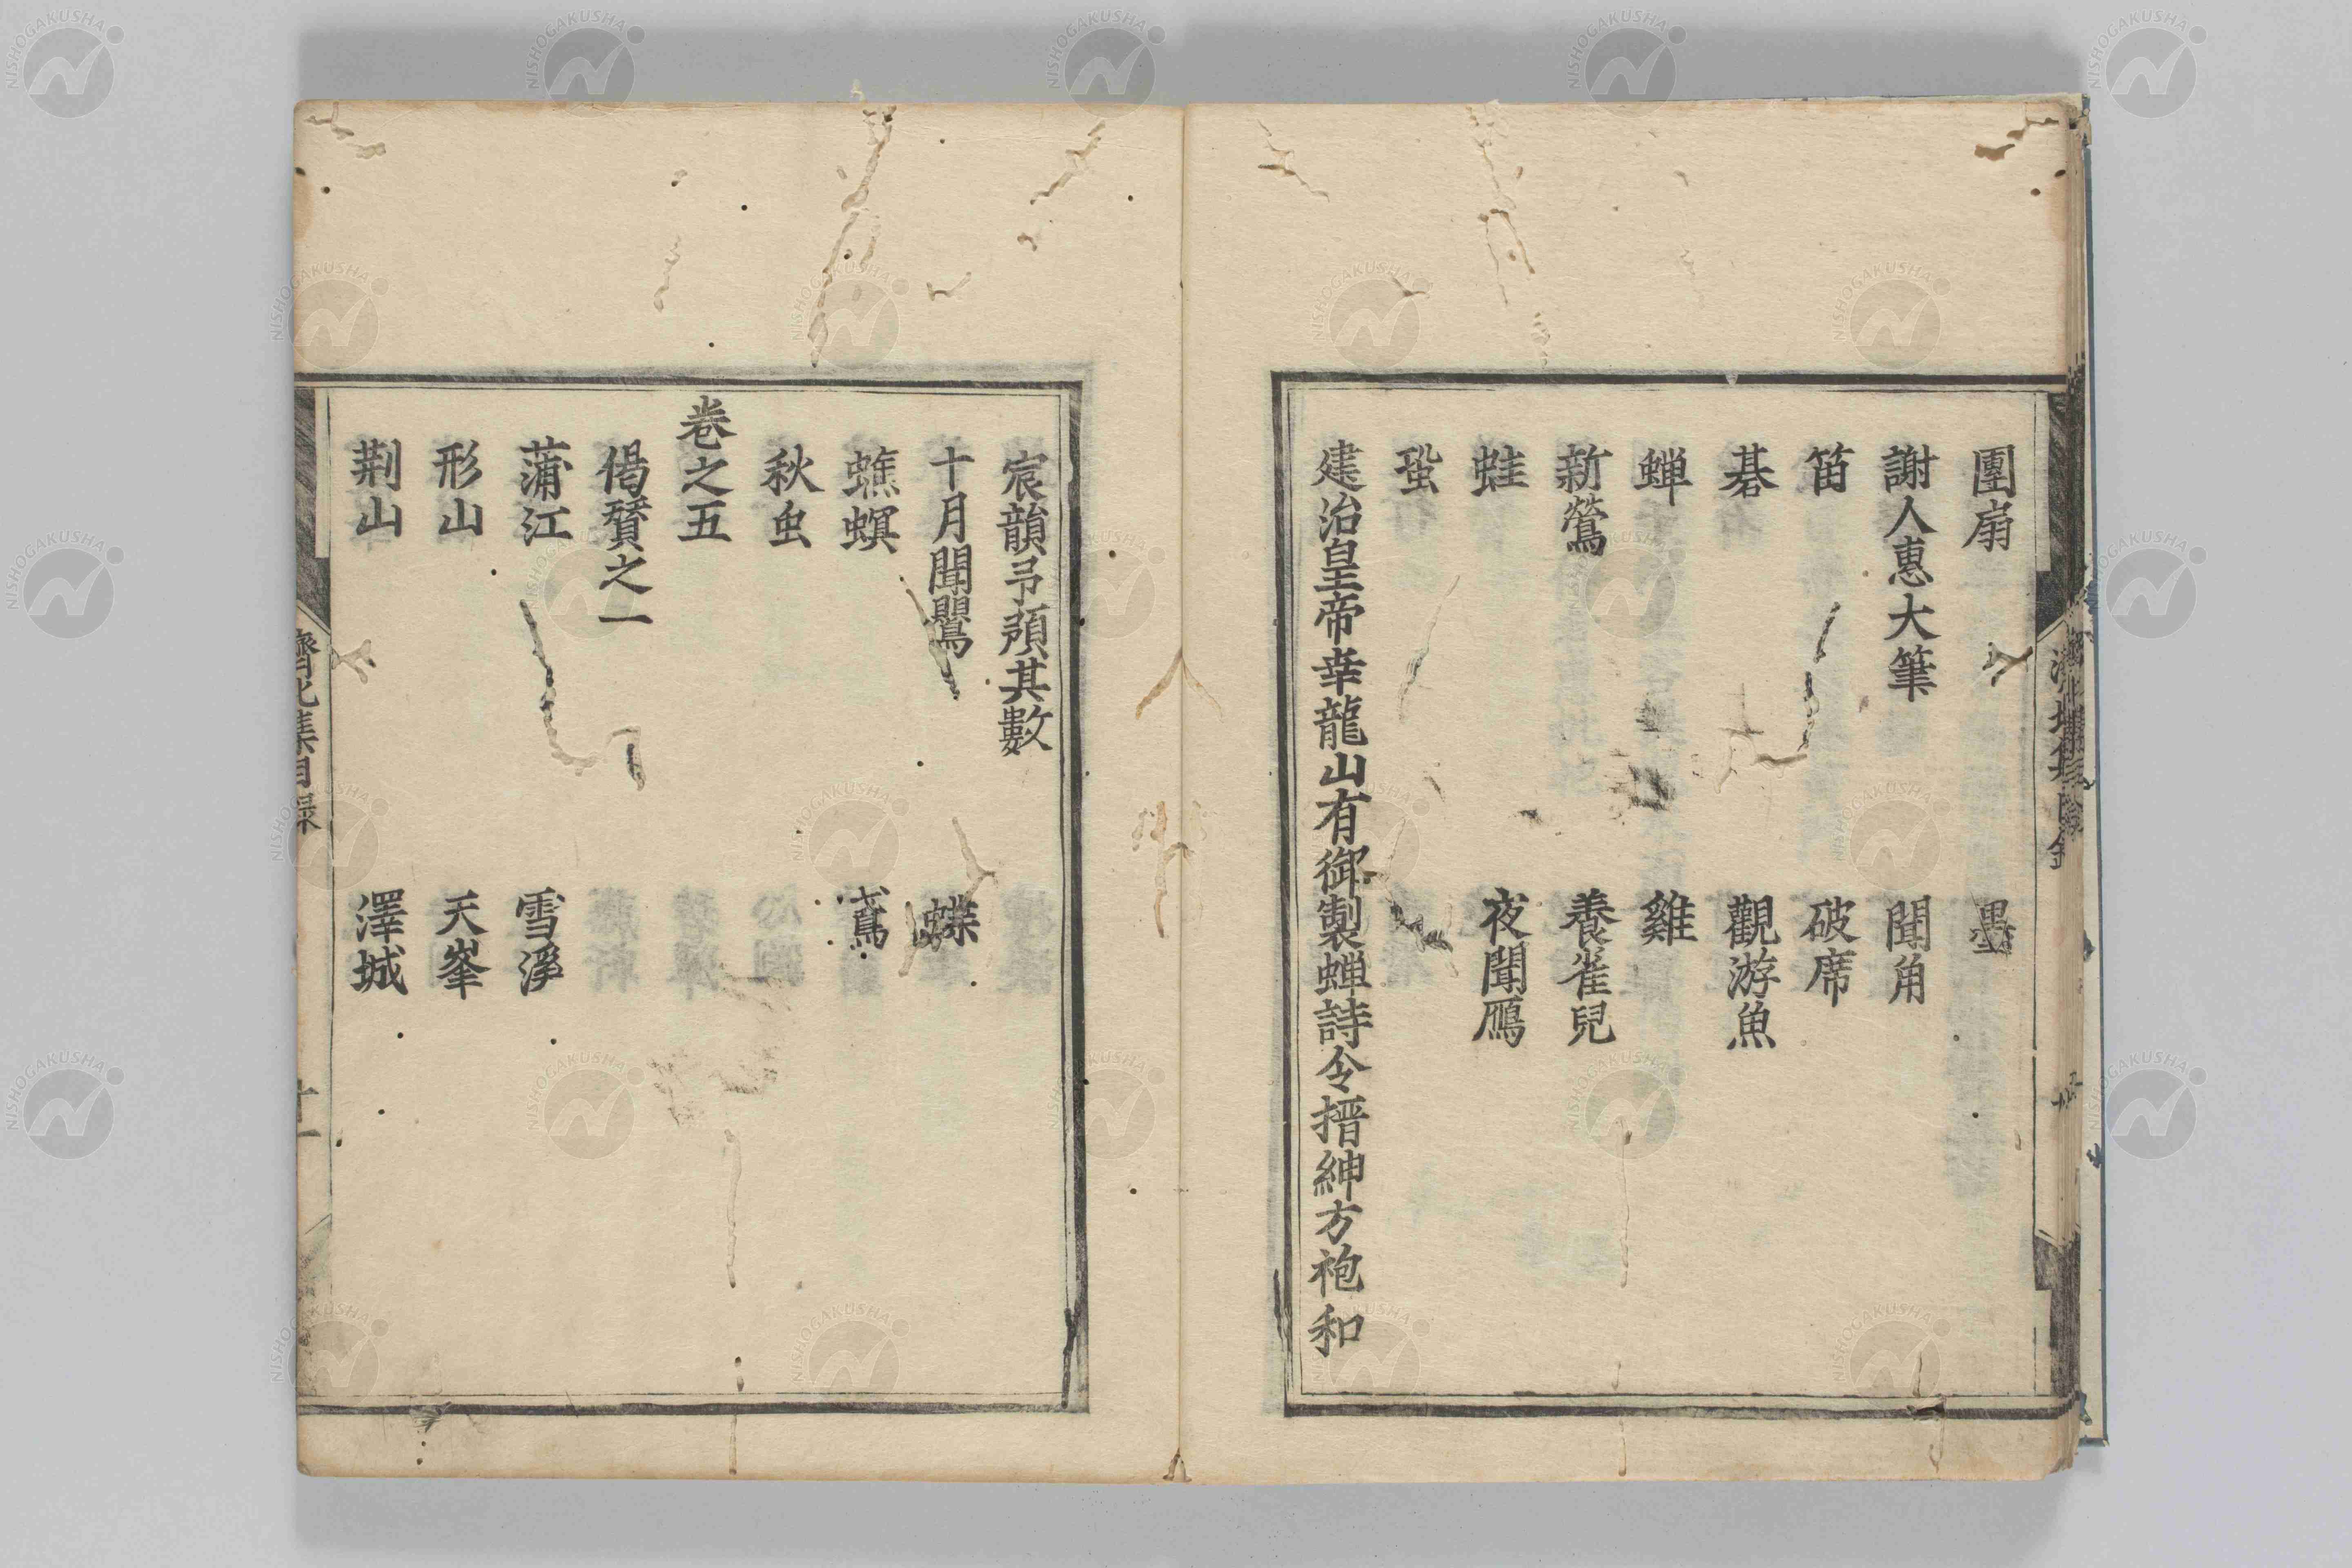 團扇　墨
謝人惠大筆　聞角
笛　破席
碁　觀游魚
蝉　雞
新鶯　養雀兒
蛙　夜聞鴈
蛩
建治皇帝幸龍山有御製蝉詩令搢紳方袍和
宸韻予預其數
十月聞鸎　蝶
蟭螟　鳶
秋虫
卷之五
偈贊之一
蒲江　雪溪
形山　天峯
荆山　澤城
濟北集目録
十一
NISHOGAKUSHA